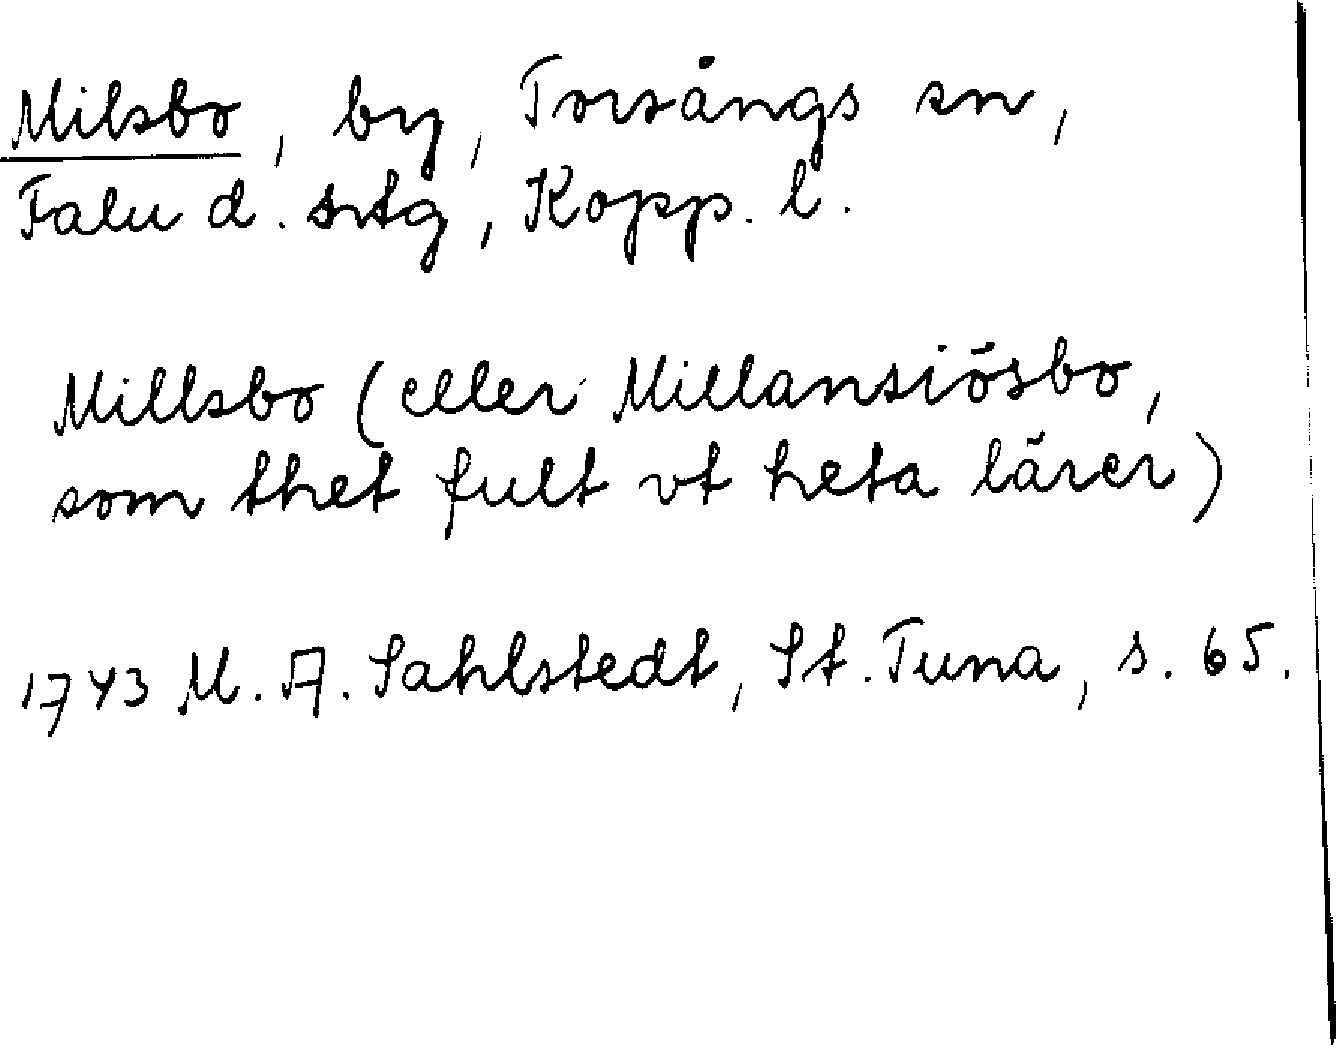 Milsbo, by, Torsångs sn,
Falu d. srtg, Kopp. l.
Millsbo (eller Millansiösbo,
som thet fult vt heta lärer)
1743 M. A. Sahlstedt, St. Tuna, s. 65.